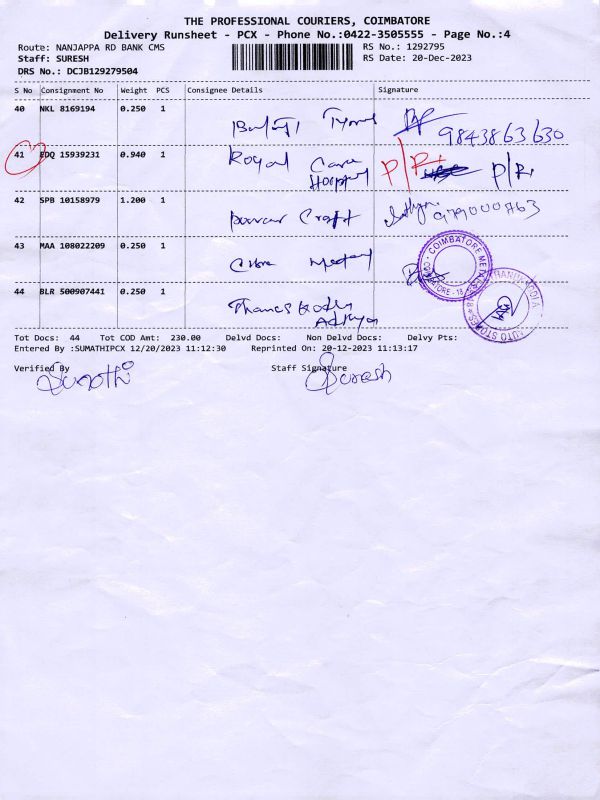 THE PROFESSIONAL COURIERS, COIMBATORE
Delivery Runsheet - PCX - Phone No.:0422-3505555 - Page No.:4
Route: NANJAPPA RD BANK CMS
RS No.: 1292795
Staff: SURESH
RS Date: 20-Dec-2023
DRS No.: DCJB129279504
S No Consignment No Weight PCS Consignee Details Signature
40 NKL 8169194 0.250 1
9843863630
41 EDQ 15939231 0.940 1 Royal Care
Hospital P/R P/R
42 SPB 10158979 1.200 1
Craft
43 MAA 108022209 0.250 1
COIMBATORE
44 BLR 500907441 0.250 1
AUTO STORES
Tot Docs: 44 Tot COD Amt: 230.00 Delvd Docs: Non Delvd Docs: Delvy Pts:
Entered By :SUMATHIPCX 12/20/2023 11:12:30 Reprinted On: 20-12-2023 11:13:17
Verified By Staff Signature
Sumathi Suresh